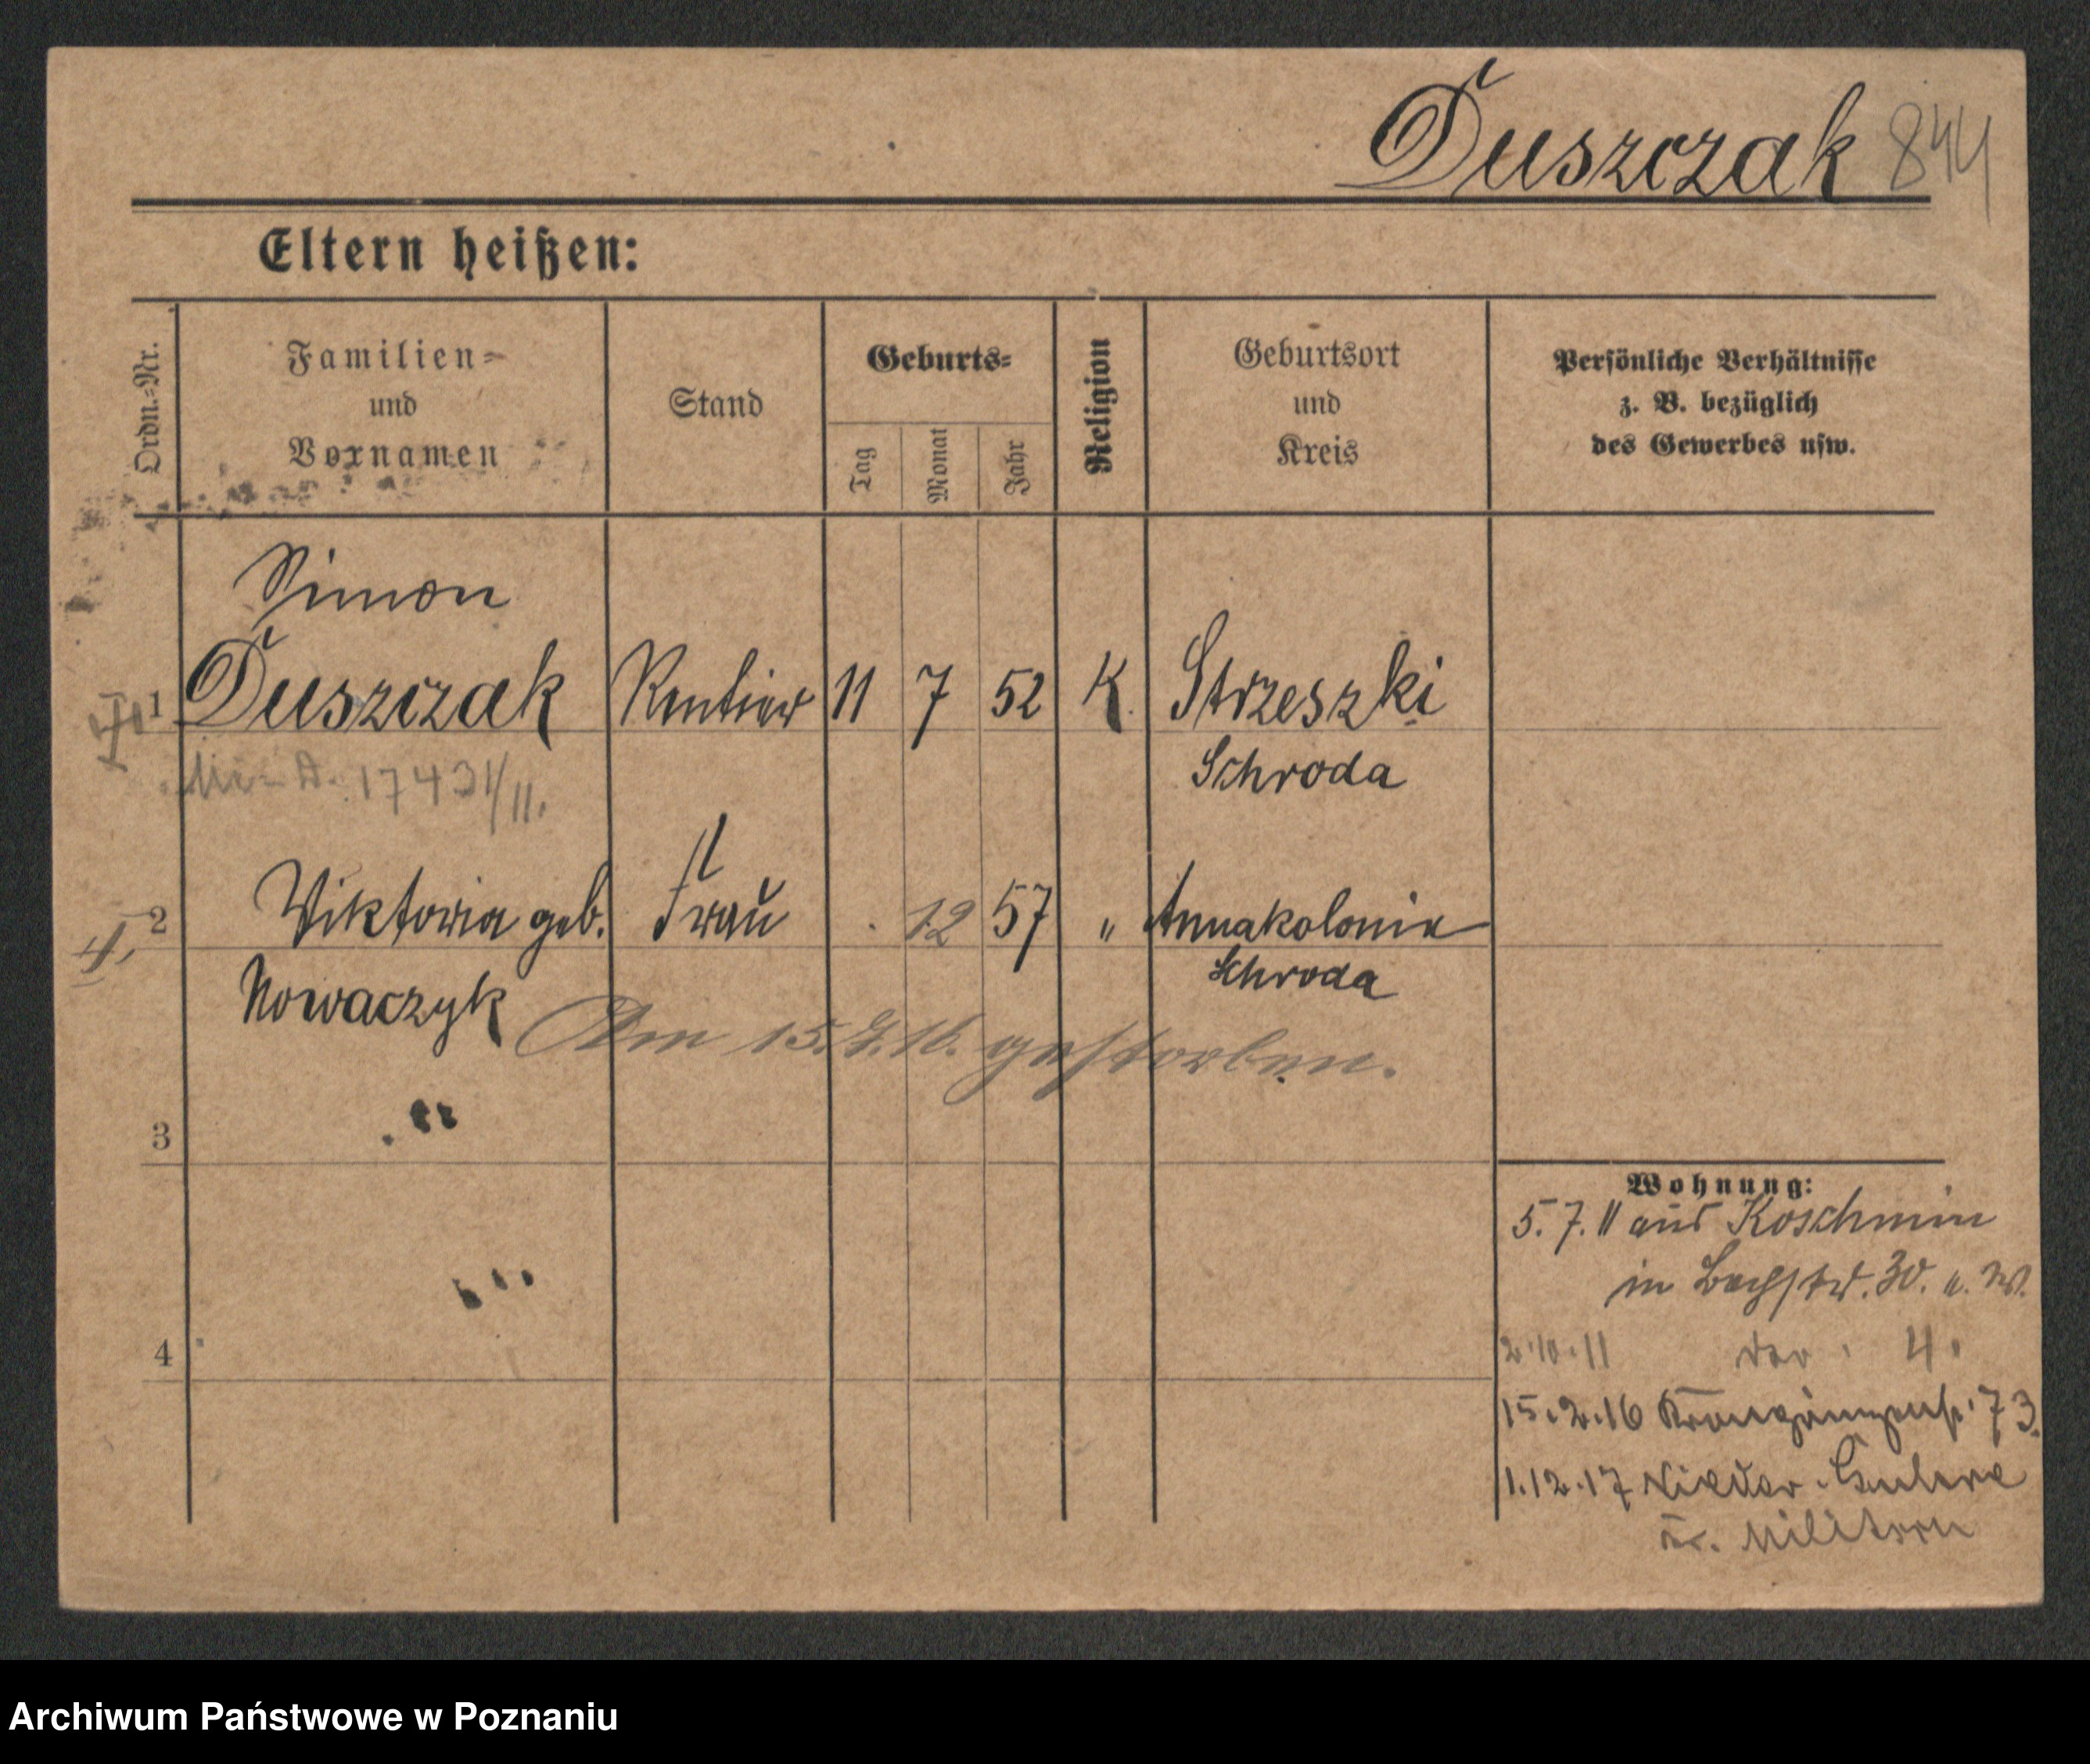 Duszczak 844
Eltern heißen:
Ordn.-Nr.
Familien-
und
Vornamen
Stand
Geburts-
Tag
Monat
Jahr
Religion
Geburtsort
und
Kreis
Persönliche Verhältnisse
z. B. bezüglich
des Gewerbes usw.
Simon
1 Duszczak Rentier 11 7 52 K. Strzeszki
17431/11.
Schroda
2 Viktoria geb. Frau 12 57 " Annakolonie
Nowaczyk
Schroda
Am 15. gestorben.
3
Wohnung:
5. 7. 11 aus Koschmin
in Bachstr. 30. u. W.
4
2.10.11 4.
15.2.16 73.
1.12.17 Nieder-
Archiwum Państwowe w Poznaniu